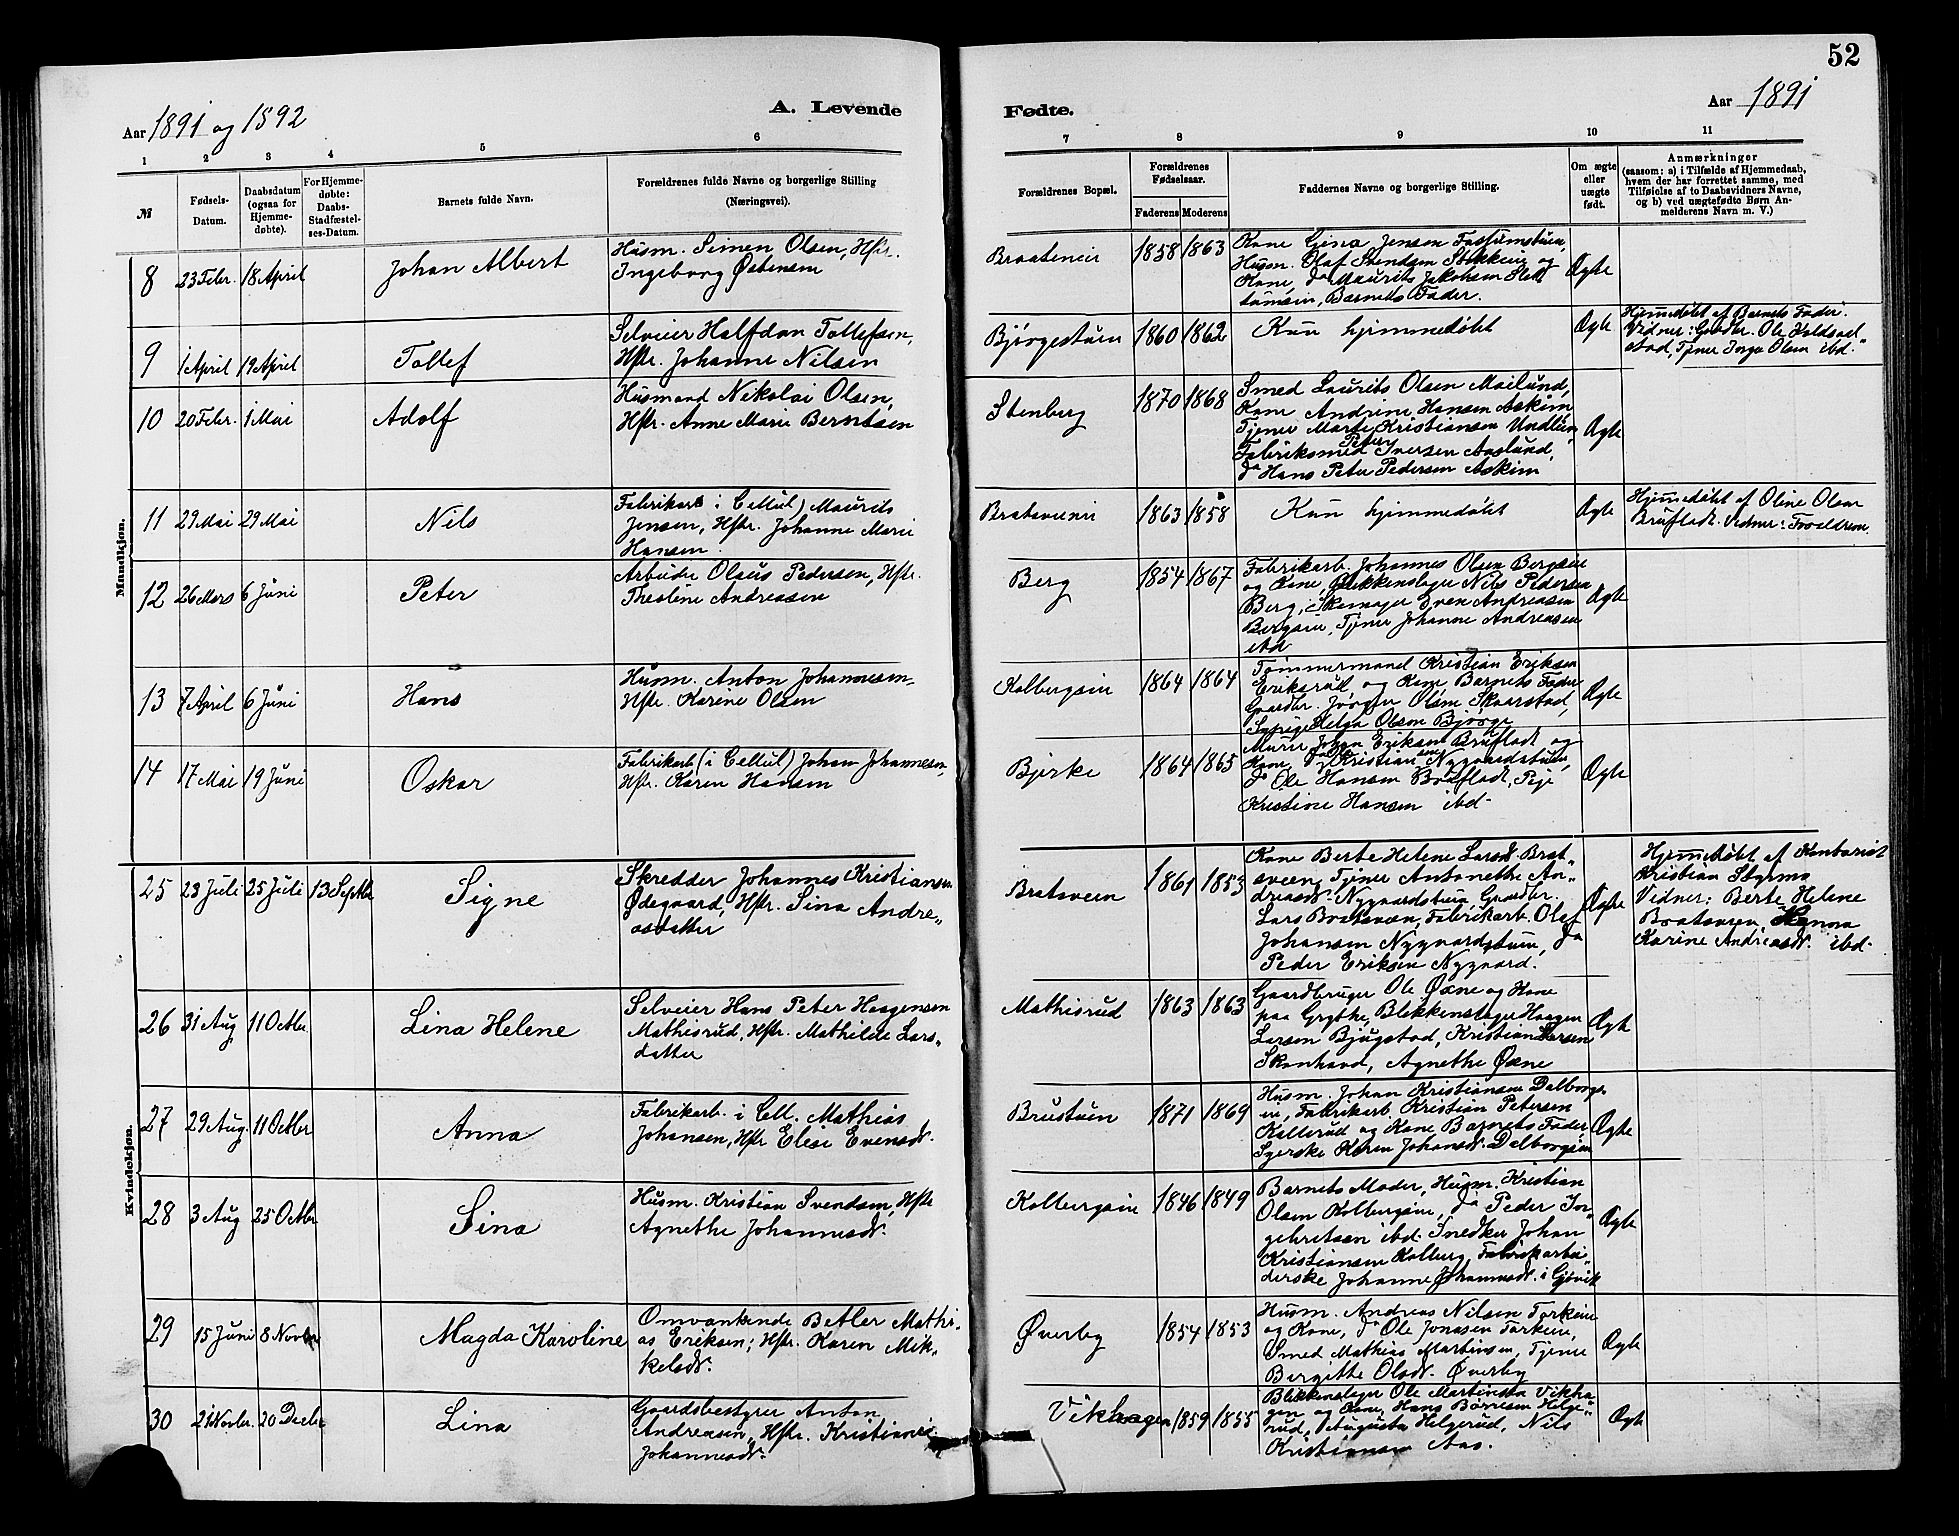 52
Aar 1891 og 1892
A. Levende
Fødte.
Aar 1891
1 2 3 4 5 6 7 8 9 10 11
№
Fødsels-
Datum.
Daabsdatum
(ogsaa for
Hjemme-
døbte).
For Hjemme-
døbte:
Daabs-
Stadfæstel-
ses-Datum.
Barnets fulde Navn.
Forældrenes fulde Navne og borgerlige Stilling
(Næringsvei).
Forældrenes Bopæl.
Forældrenes
Fødselsaar.
Faderens Moderens
Faddernes Navne og borgerlige Stilling.
Om ægte
eller
uægte
født.
Anmærkninger
(saasom: a) i Tilfælde af Hjemmedaab,
hvem der har forrettet samme, med
Tilføielse af to Daabsvidners Navne,
og b) ved uægtefødte Børn An-
melderens Navn m. V.)
Mandkjøn.
8 23 Febr. 18 April Johan Albert
Husm. Simen Olsen, Hstr.
Ingeborg Østensen
Braateneie 1858 1863
Kone Gina Jensen
Husm. Olaf Svendsen og
Kone, do Maurits Jakobsen
Barnets Fader.
Ægte
9 1 April 19 April Tollef
Selveier Halfdan Tollefsen,
Hstr. Johanne Nilsen
Bjørgestuen 1860 1862
Kun hjimmedøbt
Ægte
Hjimmedøbt af Barnets Fader.
Vidner: Gaardbr. Ole
Tjener Inga Olsen ibd.
10 20 Febr. 1 Mai Adolf
Husmand Nikolai Olsen,
Hstr. Anne Marie Berntsen
Stenberg 1870 1868
Smed Laurits Olsen Mailund,
Kone Andrine Hansen Askim
Tjener Marte Kristiansen
Fabriksmed Peter Iversen Aaslund,
do Hans Peter Pedersen Askim
Ægte
11 29 Mai 29 Mai Nils
Fabrikarb (i Cellul) Maurits
Jensen, Hstr. Johanne Marie
Hansen.
1863 1858
Kun hjimmedøbt
Ægte
Hjimmedøbt af Oline Olsen
Bruflodt. Vidner: Forældrene.
12 26 Mars 6 Juni Peter
Arbeider Olaus Pedersen, Hstr.
Theoline Andreassen
Berg 1854 1867
Fabrikarb. Johannes Olsen Bergseie
og Kone, Blikkenslager Nils Pedersen
Berg, Skomager Even Andreasen
Bergseie, Tjener Johanne Andreasen
ibd
Ægte
13 7 April 6 Juni Hans
Husm. Anton Johannesen
Hstr. Karine Olsen
Kolbergseie 1864 1864
Tømmermand Kristian Eriksen
Eriksrud og Kone, Barnets Fader
Gaardbr. Jørgen Olsen Skaarstad,
Sypige Helga Olsen Bjørge
Ægte
14 17 Mai 19 Juni Oskar
Fabrikarb (i Cellul) Johan Johannesen,
Hstr. Karen Hansen
Bjerke 1864 1865
Murer Johan Eriksen Bruflodt og
Kone, do Kristian Nygaardstuen,
do Ole Hansen Bruflodt, Pige
Kristine Hansen ibd.
Ægte
Kvindekjøn.
25 23 Juli 25 Juli 13 Septbr Signe
Skredder Johannes Kristiansen
Ødegaard, Hstr. Sina Andre-
asdatter
Bratsveen 1861 1853
Kone Berte Helene Larsdr. Brat-
sveen, Tjener Antonethe An-
dreasdr. Nygaardstuen, Gaardbr.
Lars Bratsveen, Fabrikarb. Olaf
Johansen Nygaardstuen, do
Peder Eriksen Nygaard.
Ægte
Hjimmedøbt af Kontorist
Kristian Styrmo
Vidner: Berte Helene
Bratsveen, Hanna
Karine Andreasdr. ibd.
26 31 Aug 11 Octbr Lina Helene
Selveier Hans Peter Haagensen
Mathisrud, Hstr. Mathilde Lars-
datter
Mathisrud 1863 1863
Gaardbruger Ole Øxne og Kone
paa Grythe, Blikkenslager Haagen
Larsen Bjugstad, Kristian Larsen
Skonhovd, Agnethe Øxne
Ægte
27 29 Aug. 11 Octbr Anna
Fabrikarb. i Cell. Mathias
Johansen, Hstr Elise Evensdr.
Brustuen 1871 1869
Husm. Johan Kristiansen Dalborgs-
eie, Fabrikarb Kristian Petersen
Kallerud og Kone Barnets Fader
Syerske Karen Johansdr. Dalborgseie
Ægte
28 3 Aug 25 Octbr Sina
Husm. Kristian Svendsen, Hstr
Agnethe Johannesdr.
Kolbergseie 1846 1849
Barnets Moder, Husm. Kristian
Olsen Kolbergseie, do Peder In-
gebretsen ibd. Snedker Johan
Kristiansen Kolberg, Fabrikarbei-
derske Johanne Johannesdr. i Gjøvik
Ægte
29 15 Juni 8 Novbr Magda Karoline
Omvankende Betler Mathi-
as Eriksen; Hstr. Karen Mik-
kelsdr.
Øverby 1854 1853
Husm. Andreas Nilsen Torkeie
og Kone, do Ole Jonasen Torkeie,
Smed Mathias Martinsen, Tjener
Bergitte Olsdr. Øverby
Ægte
30 21 Novbr. 20 Decbr Lina
Gaardsbestyrer Anton
Andreasen, Hstr. Kristiane
Johannesdr.
Vikhagen 1859 1855
Blikkenslager Ole Martinsen Vikha-
gen og Kone, Hans Børresen Helge-
rud, Augusta Helgerud, Nils
Kristiansen Aas.
Ægte